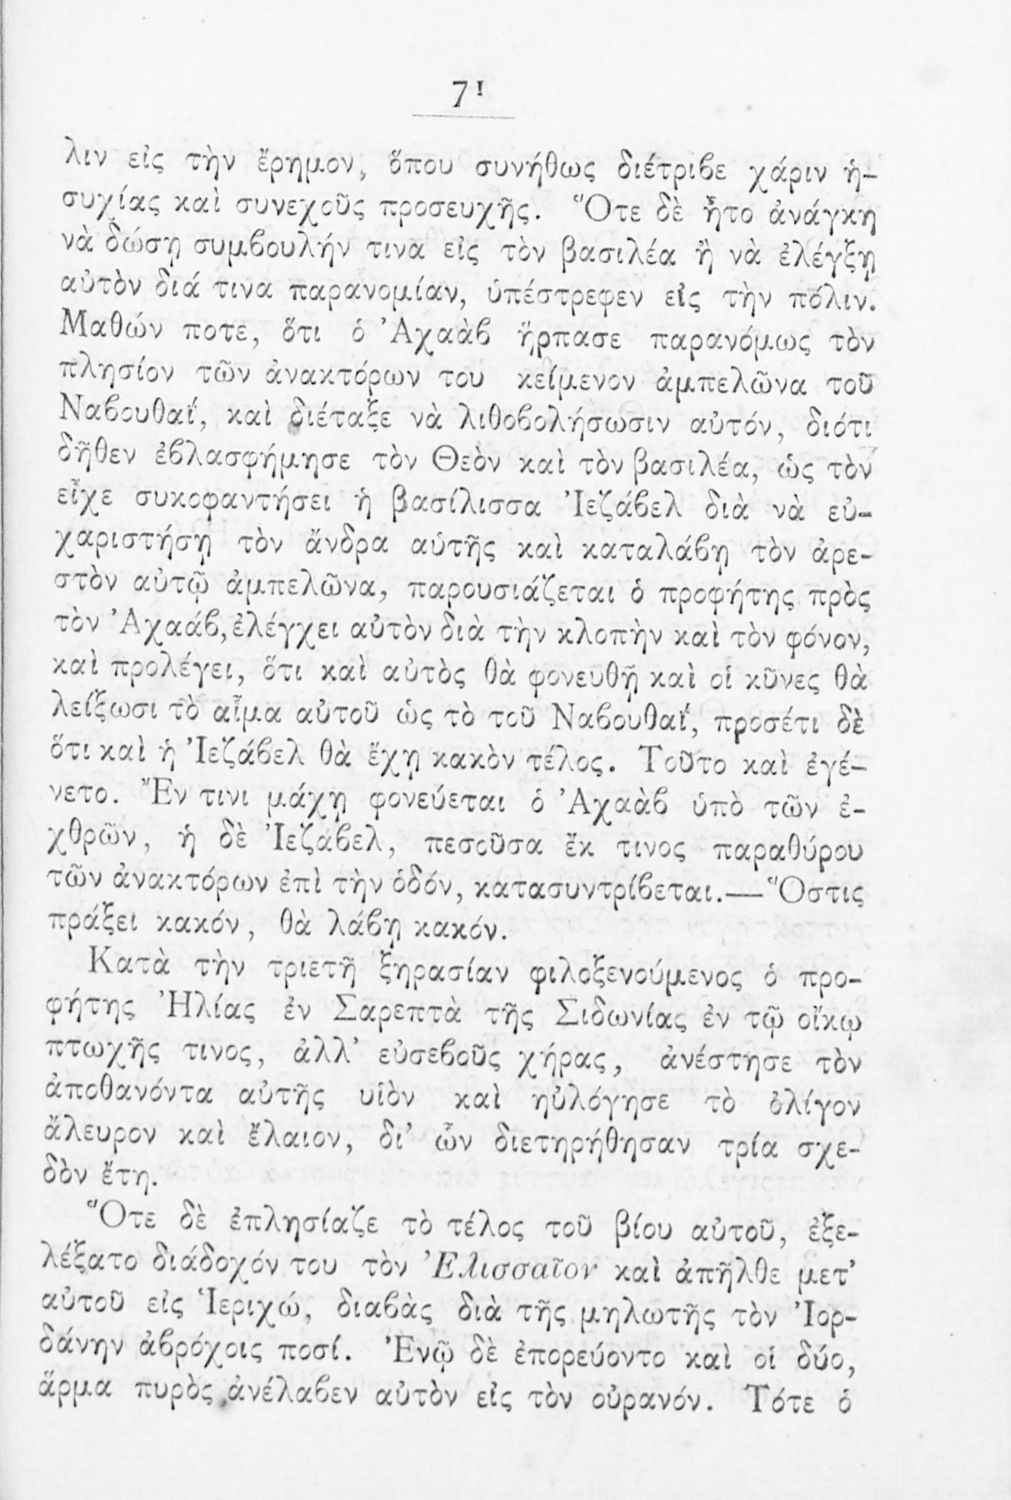 71
λιν εἰς τὴν ἔρημον, ὅπου συνήθως διέτριβε χάριν ἡ-
συχίας καὶ συνεχοῦς προσευχῆς. Ὅτε δὲ ἦτο ἀνάγκη
νὰ δώσῃ συμβουλήν τινα εἰς τὸν βασιλέα ἢ νὰ ἐλέγξῃ
αὐτὸν διά τινα παρανομίαν, ὑπέστρεφεν εἰς τὴν πόλιν.
Μαθών ποτε, ὅτι ὁ Ἀχαὰβ ἥρπασε παρανόμως τὸν
πλησίον τῶν ἀνακτόρων του κείμενον ἀμπελῶνα τοῦ
Ναβουθαΐ, καὶ διέταξε νὰ λιθοβολήσωσιν αὐτόν, διότι
δῆθεν ἐβλασφήμησε τὸν Θεὸν καὶ τὸν βασιλέα, ὡς τὸν
εἶχε συκοφαντήσει ἡ βασίλισσα Ἰεζάβελ διὰ νὰ εὐ-
χαριστήσῃ τὸν ἄνδρα αὑτῆς καὶ καταλάβῃ τὸν ἀρε-
στὸν αὐτῷ ἀμπελῶνα, παρουσιάζεται ὁ προφήτης πρὸς
τὸν Ἀχαάβ, ἐλέγχει αὐτὸν διὰ τὴν κλοπὴν καὶ τὸν φόνον,
καὶ προλέγει, ὅτι καὶ αὐτὸς θὰ φονευθῇ καὶ οἱ κῦνες θὰ
λείξωσι τὸ αἷμα αὐτοῦ ὡς τὸ τοῦ Ναβουθαΐ, προσέτι δὲ
ὅτι καὶ ἡ Ἰεζάβελ θὰ ἔχῃ κακὸν τέλος. Τοῦτο καὶ ἐγέ-
νετο. Ἔν τινι μάχῃ φονεύεται ὁ Ἀχαὰβ ὑπὸ τῶν ἐ-
χθρῶν, ἡ δὲ Ἰεζάβελ, πεσοῦσα ἔκ τινος παραθύρου
τῶν ἀνακτόρων ἐπὶ τὴν ὁδόν, κατασυντρίβεται.—Ὅστις
πράξει κακόν, θὰ λάβῃ κακόν.
Κατὰ τὴν τριετῆ ξηρασίαν φιλοξενούμενος ὁ προ-
φήτης Ἠλίας ἐν Σαρεπτὰ τῆς Σιδωνίας ἐν τῷ οἴκῳ
πτωχῆς τινος, ἀλλ’ εὐσεβοῦς χήρας, ἀνέστησε τὸν
ἀποθανόντα αὐτῆς υἱὸν καὶ ηὐλόγησε τὸ ὀλίγον
ἄλευρον καὶ ἔλαιον, δι’ ὧν διετηρήθησαν τρία σχε-
δὸν ἔτη.
Ὅτε δὲ ἐπλησίαζε τὸ τέλος τοῦ βίου αὐτοῦ, ἐξε-
λέξατο διάδοχόν του τὸν Ἐλισσαῖον καὶ ἀπῆλθε μετ’
αὐτοῦ εἰς Ἱεριχώ, διαβὰς διὰ τῆς μηλωτῆς τὸν Ἰορ-
δάνην ἀβρόχοις ποσί. Ἐνῷ δὲ ἐπορεύοντο καὶ οἱ δύο,
ἅρμα πυρὸς ἀνέλαβεν αὐτὸν εἰς τὸν οὐρανόν. Τότε ὁ